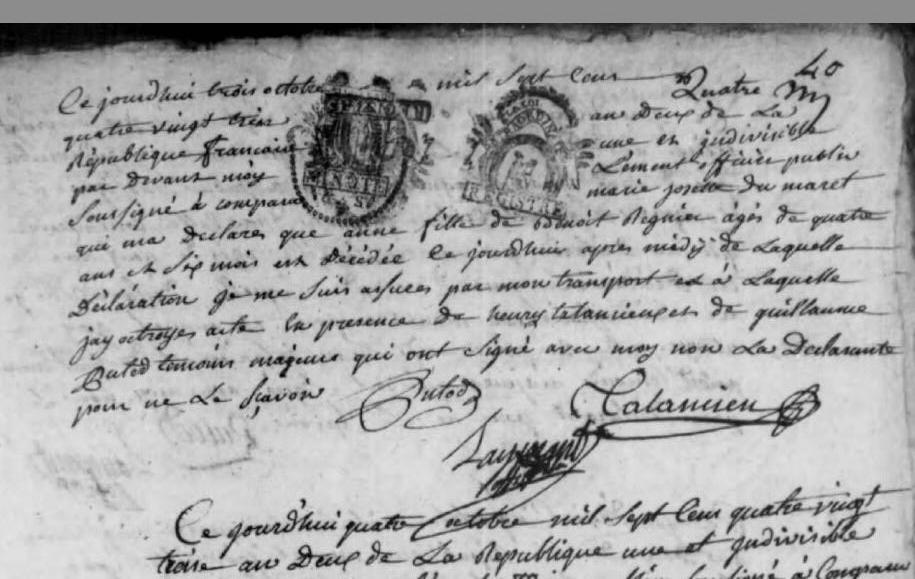 40
Ce jourdhui trois octobre mil sept Cens Quatre
quatre vingt treize an Deux de La
République francaise une et indivisible
par Devant moy officier public
Soussigné à comparu marie josette du maret
qui ma Declarés que anne fille de Benoit Regnier âgés de quatre
ans et Six mois est Décédée Ce jourdhui apres midÿ de Laquelle
Déclaration je me Suis assurés par mon transport et à Laquelle
jay octroyés acte En presence de henry talancieux et de guillaume
Butod temoins majeurs qui ont Signé avec moy non La Declarante
pour ne Le Sçavoir Butod Talancieu
MINUTE
LA LOI
REGISTRE
Ce jourd'hui quatre octobre mil Sept Cens quatre vingt
treise an Deux de La République une et jndivisible